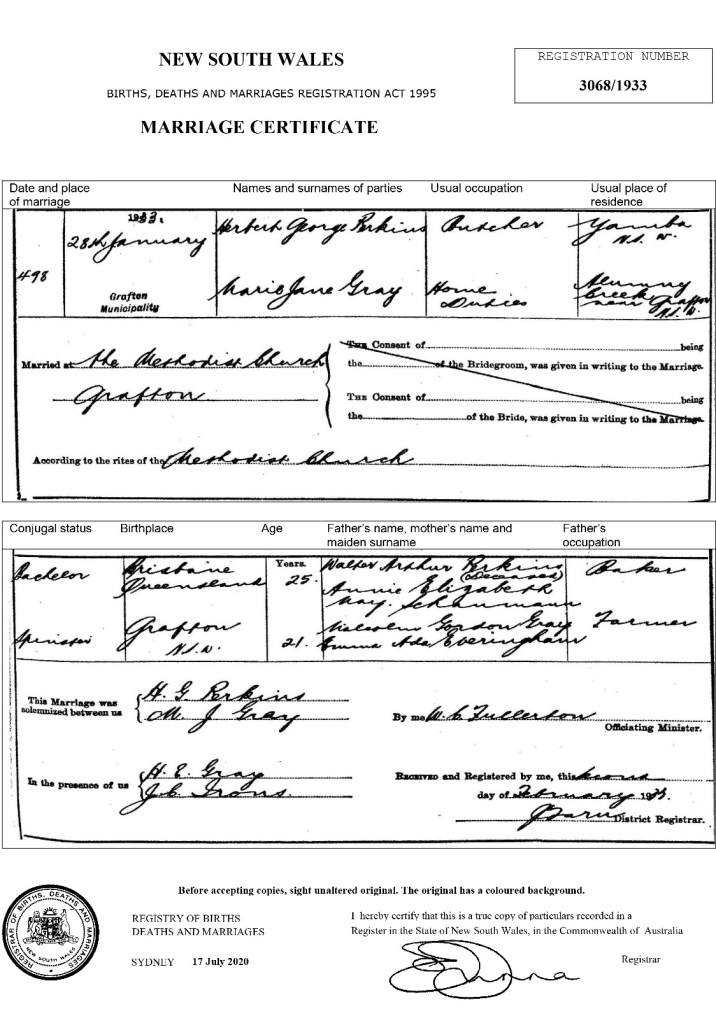 NEW SOUTH WALES
REGISTRATION NUMBER
3068/1933
BIRTHS, DEATHS AND MARRIAGES REGISTRATION ACT 1995
MARRIAGE CERTIFICATE
Date and place of marriage
Names and surnames of parties
Usual occupation
Usual place of residence
1933.
28th January
Herbert George Perkins
Butcher
Yamba
N.S.W.
498
Grafton
Municipality
Marie Jane Gray
Home
Duties
Alumny
Creek
near Grafton
N.S.W.
Married at the Methodist Church
Grafton
THE Consent of being
the of the Bridegroom, was given in writing to the Marriage.
THE Consent of being
the of the Bride, was given in writing to the Marriage.
According to the rites of the Methodist Church
Conjugal status
Birthplace
Age
Father's name, mother's name and maiden surname
Father's occupation
Bachelor
Brisbane
Queensland
Years.
25.
Walter Arthur Perkins
(deceased)
Annie Elizabeth
May. Schaumann
Baker
Spinster
Grafton
N.S.W.
21.
Malcolm Gordon Gray
Emma Ada Everingham
Farmer
This Marriage was
solemnized between us
H. G. Perkins
M. J Gray
By me W. C. Fullerton
Officiating Minister.
In the presence of us
H. E. Gray
J. C. Irons
RECEIVED and Registered by me, this second
day of February 1933.
District Registrar.
Before accepting copies, sight unaltered original. The original has a coloured background.
REGISTRAR OF BIRTHS, DEATHS AND MARRIAGES
NEW SOUTH WALES
REGISTRY OF BIRTHS
DEATHS AND MARRIAGES
SYDNEY 17 July 2020
I hereby certify that this is a true copy of particulars recorded in a
Register in the State of New South Wales, in the Commonwealth of Australia
Registrar